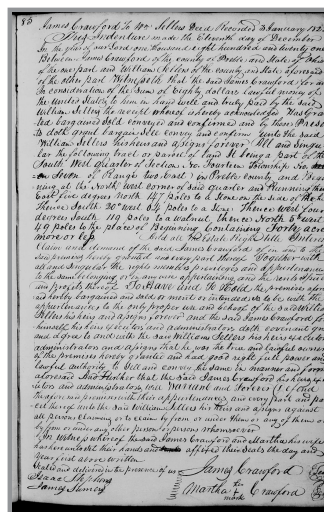 86
James Crawford To Wm Sellers Deed Recorded January 182
This Indenture made the Eleventh day of December
In the year of our Lord one thousand eight hundred and twenty one
Between James Crawford of the county of Preble and State of Ohio
of the one part and William Sellers of the county and State aforesaid
of the other part Witnesseth that the said James Crawford for and
In consideration of the Sum of Eighty dollars lawful money of
the United States to him in hand well and truly paid by the said
William Sellers the receipt whereof is hereby acknowledged Has gran
ted bargained sold conveyed and confirmed and by these Presents
do doth grant bargain Sell convey and confirm unto the said
William Sellers his heirs and assigns forever All and Singu
lar the following tract or parcel of land It being a part of the
South West quarter of Section Fourteen Township
Seven of Range two East in Preble county and Begin
ning at the North west corner of said quarter and Running thence
East five degrees North 47 poles to a Stone on the side of the
Thence South 80 west 84 poles to a Thence west four
degrees South 119 poles to a walnut, thence North 6 west
49 poles to the place of Beginning Containing Forty acres
more or less all Estate Right Title Interest
Claim and demand of the said James Crawford of in and to the
said premises hereby granted and every part thereof Together with
all and Singular the rights members privileges and appurtenances
to the same belonging or in any wise appertaining and the rents issues
and profits thereof To Have and To Hold the premises afore
said hereby bargained and sold or meant or intended so to be with the
appurtenances to the only proper use and behoof of the said William
Sellers his heirs and assigns forever and the said James Crawford for
himself his heirs executors and administrators doth covenant grant
and agree to and with the said William Sellers his heirs executors
administrators and assigns that he was the true and lawful owner
of the premises hereby granted and had good right full power and
lawful authority to Sell and convey the same in manner and form
aforesaid And Further that the said James Crawford his heirs ex
ecutors and administrators will Warrant and Forever Defend
the aforesaid premises with their appurtenances and every part and par
cel thereof unto the said William Sellers his heirs and assigns against
all persons claiming or to claim by from or under them or any of them or
by from or under any other person or persons whomsoever
In witness whereof the said James Crawford and Martha his wife
has hereunto set their hands and affixed their Seals the day and
year first above written
Sealed and delivered in the presence of us James Crawford
Isaac Stephens
James Martha her mark Crawford